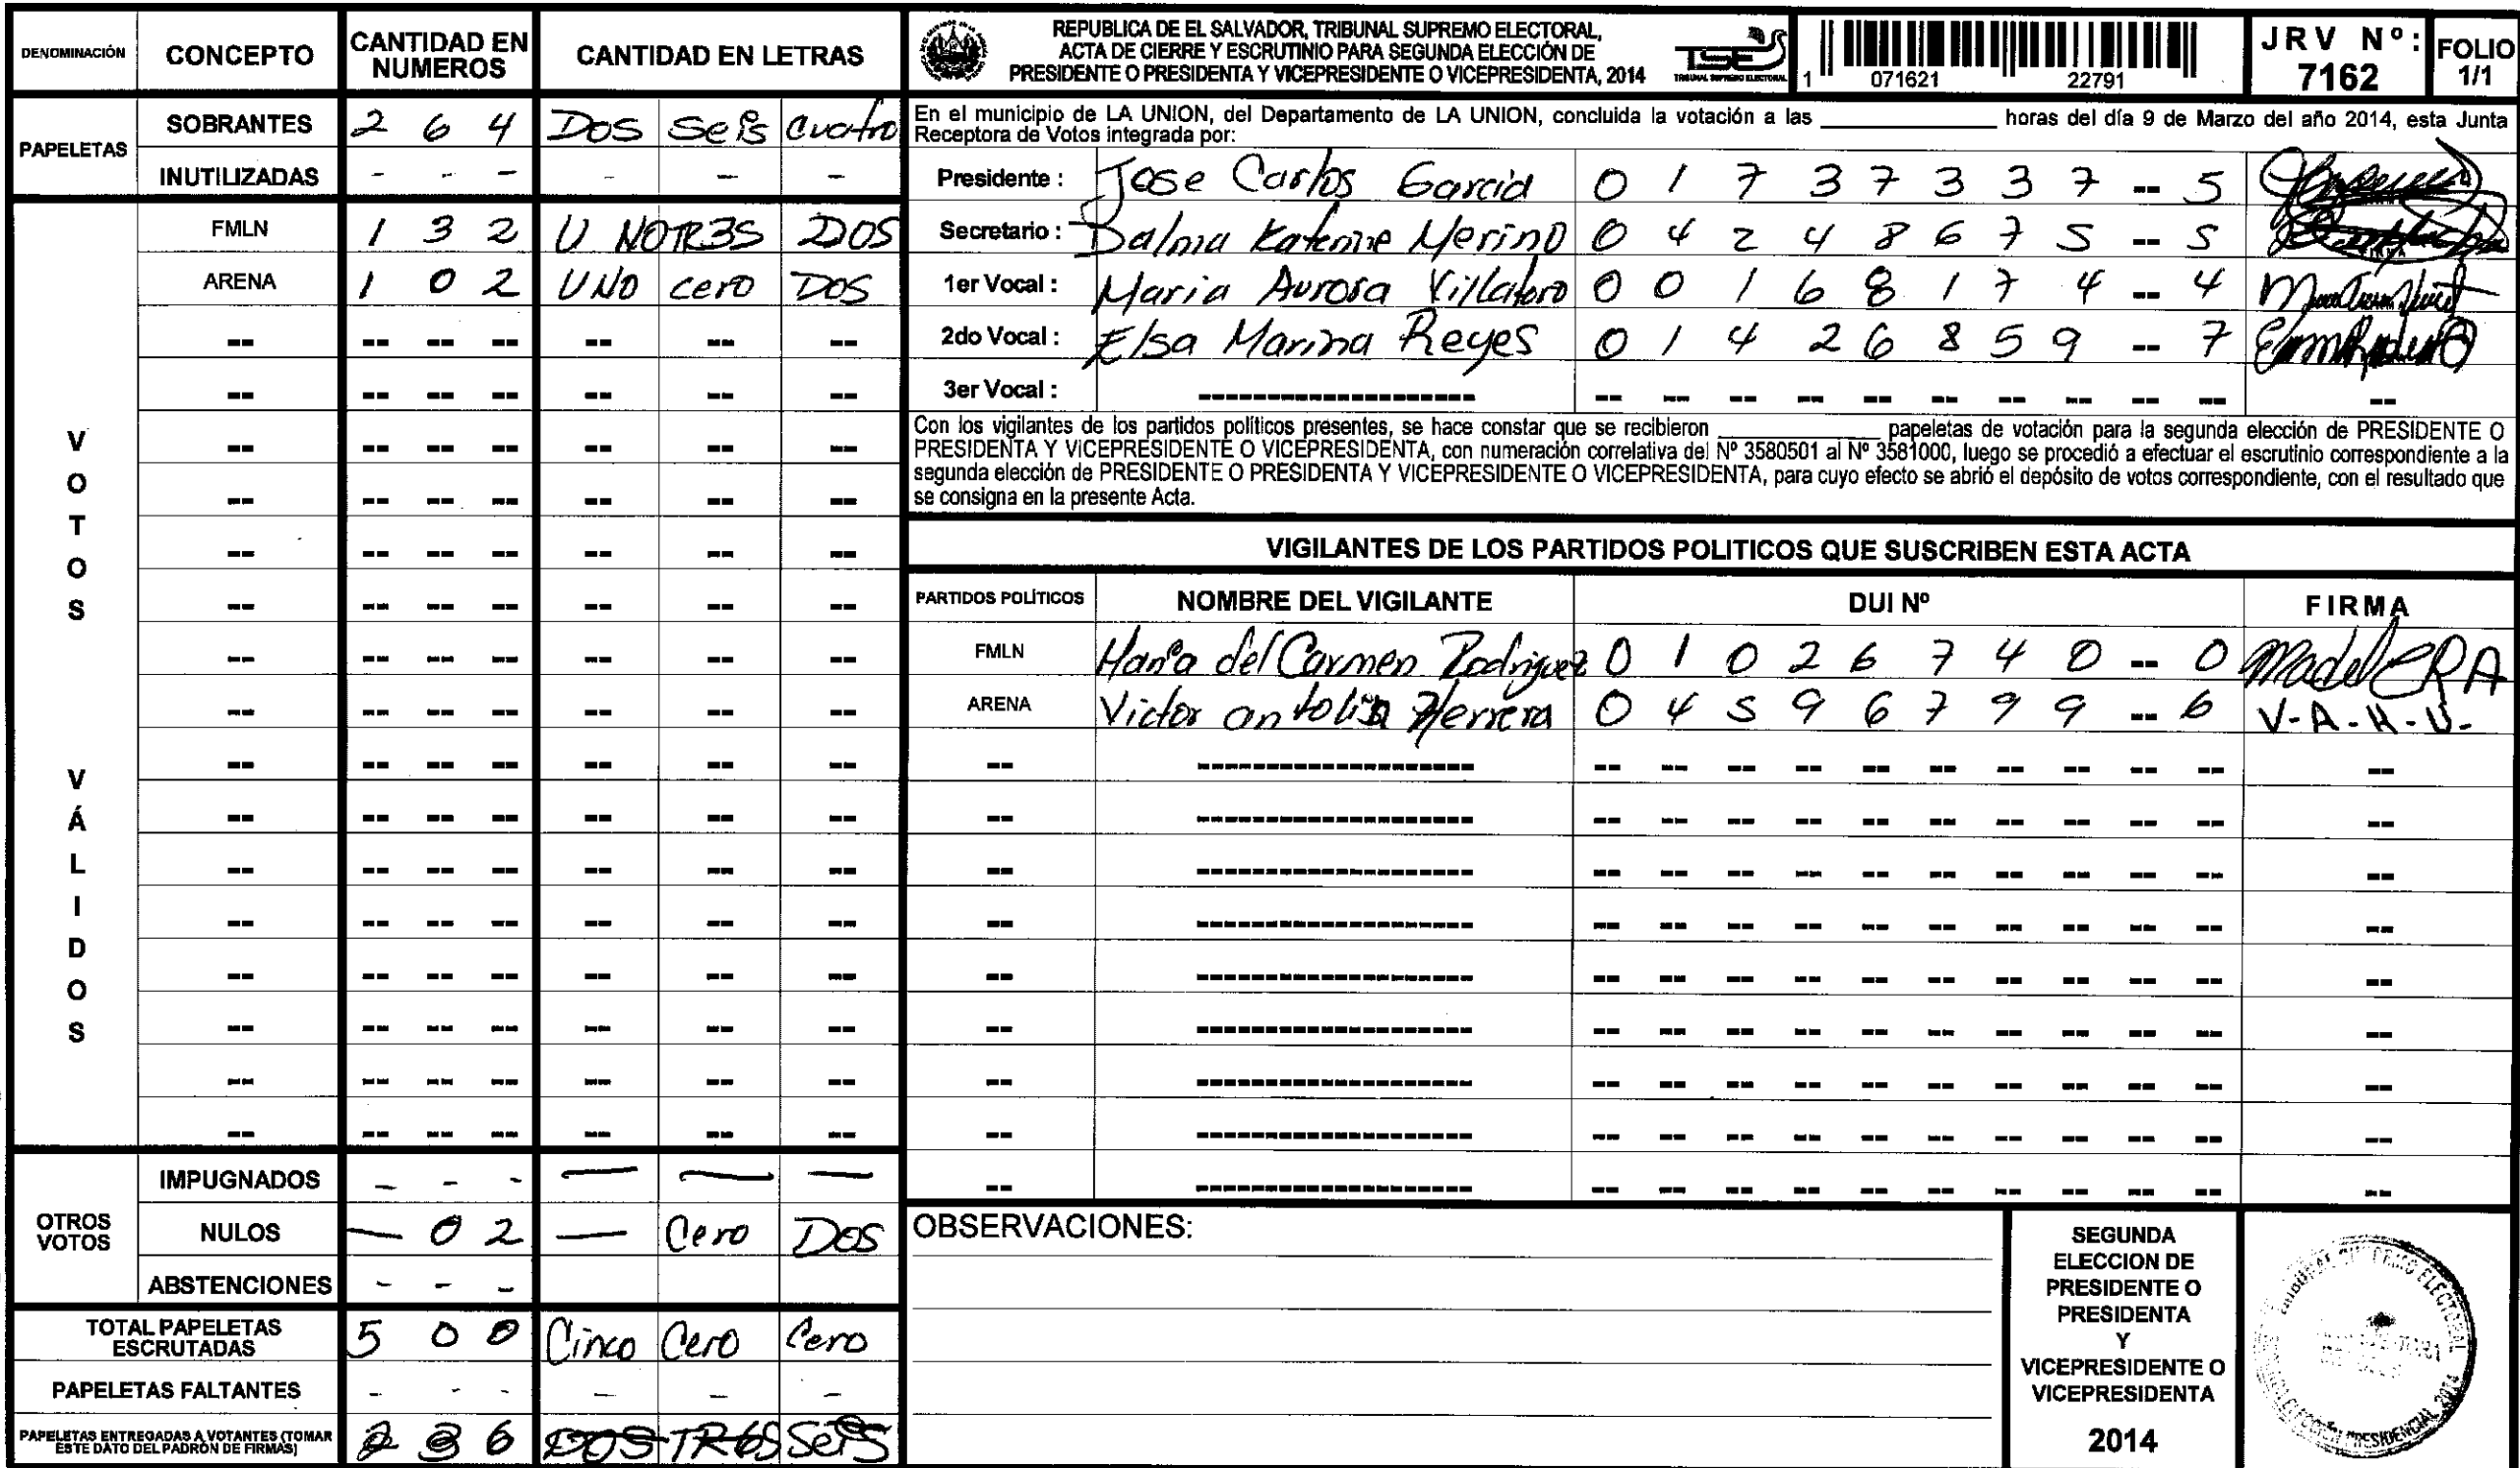 DENOMINACIÓN CONCEPTO CANTIDAD EN NUMEROS CANTIDAD EN LETRAS
PAPELETAS
SOBRANTES 2 6 4 DOS Seis Cuatro
INUTILIZADAS - - - - - -
VOTOS VÁLIDOS
FMLN 1 3 2 U NOTR3S DOS
ARENA 1 0 2 UNO cero DOS
OTROS VOTOS
IMPUGNADOS - - - - - -
NULOS - 0 2 - Cero DOS
ABSTENCIONES - - -
TOTAL PAPELETAS ESCRUTADAS 5 0 0 Cinco Cero Cero
PAPELETAS FALTANTES - - - - - -
PAPELETAS ENTREGADAS A VOTANTES (TOMAR ESTE DATO DEL PADRÓN DE FIRMAS) 2 3 6 DOS TRES SeiS
REPUBLICA DE EL SALVADOR, TRIBUNAL SUPREMO ELECTORAL,
ACTA DE CIERRE Y ESCRUTINIO PARA SEGUNDA ELECCIÓN DE
PRESIDENTE O PRESIDENTA Y VICEPRESIDENTE O VICEPRESIDENTA, 2014
TSE
TRIBUNAL SUPREMO ELECTORAL
1 071621 22791
JRV Nº: 7162
FOLIO 1/1
En el municipio de LA UNION, del Departamento de LA UNION, concluida la votación a las __________ horas del día 9 de Marzo del año 2014, esta Junta
Receptora de Votos integrada por:
Presidente : Jose Carlos Garcia 0 1 7 3 7 3 3 7 -- 5
Secretario : Dalma Katerine Merino 0 4 2 4 8 6 7 5 -- 5
1er Vocal : Maria Aurora Villatoro 0 0 1 6 8 1 7 4 -- 4
2do Vocal : Elsa Marina Reyes 0 1 4 2 6 8 5 9 -- 7
3er Vocal :
Con los vigilantes de los partidos políticos presentes, se hace constar que se recibieron __________ papeletas de votación para la segunda elección de PRESIDENTE O
PRESIDENTA Y VICEPRESIDENTE O VICEPRESIDENTA, con numeración correlativa del Nº 3580501 al Nº 3581000, luego se procedió a efectuar el escrutinio correspondiente a la
segunda elección de PRESIDENTE O PRESIDENTA Y VICEPRESIDENTE O VICEPRESIDENTA, para cuyo efecto se abrió el depósito de votos correspondiente, con el resultado que
se consigna en la presente Acta.
VIGILANTES DE LOS PARTIDOS POLITICOS QUE SUSCRIBEN ESTA ACTA
PARTIDOS POLÍTICOS NOMBRE DEL VIGILANTE DUI Nº FIRMA
FMLN Maria del Carmen Rodriguez 0 1 0 2 6 7 4 0 -- 0 MadelCRA
ARENA Victor antolin Herrera 0 4 5 9 6 7 9 9 -- 6 V-A-H-U-
OBSERVACIONES:
SEGUNDA
ELECCION DE
PRESIDENTE O
PRESIDENTA
Y
VICEPRESIDENTE O
VICEPRESIDENTA
2014